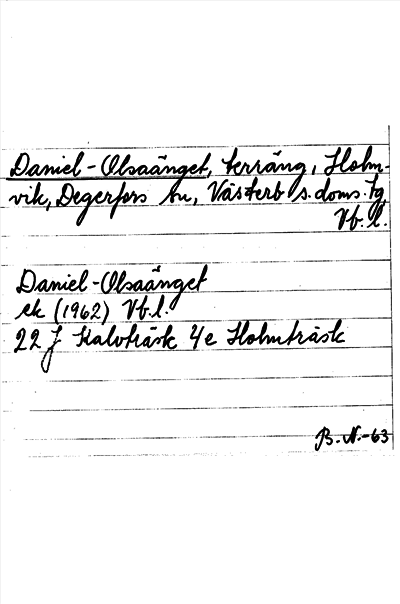 Daniel-Olsaänget, terräng, Holm-
vik, Degerfors sn, Västerb s. doms. tg,
Vb. l.
Daniel-Olsaänget
ek (1962) Vb. l.
22 J Kalvträsk 4e Holmträsk
B. N.-63